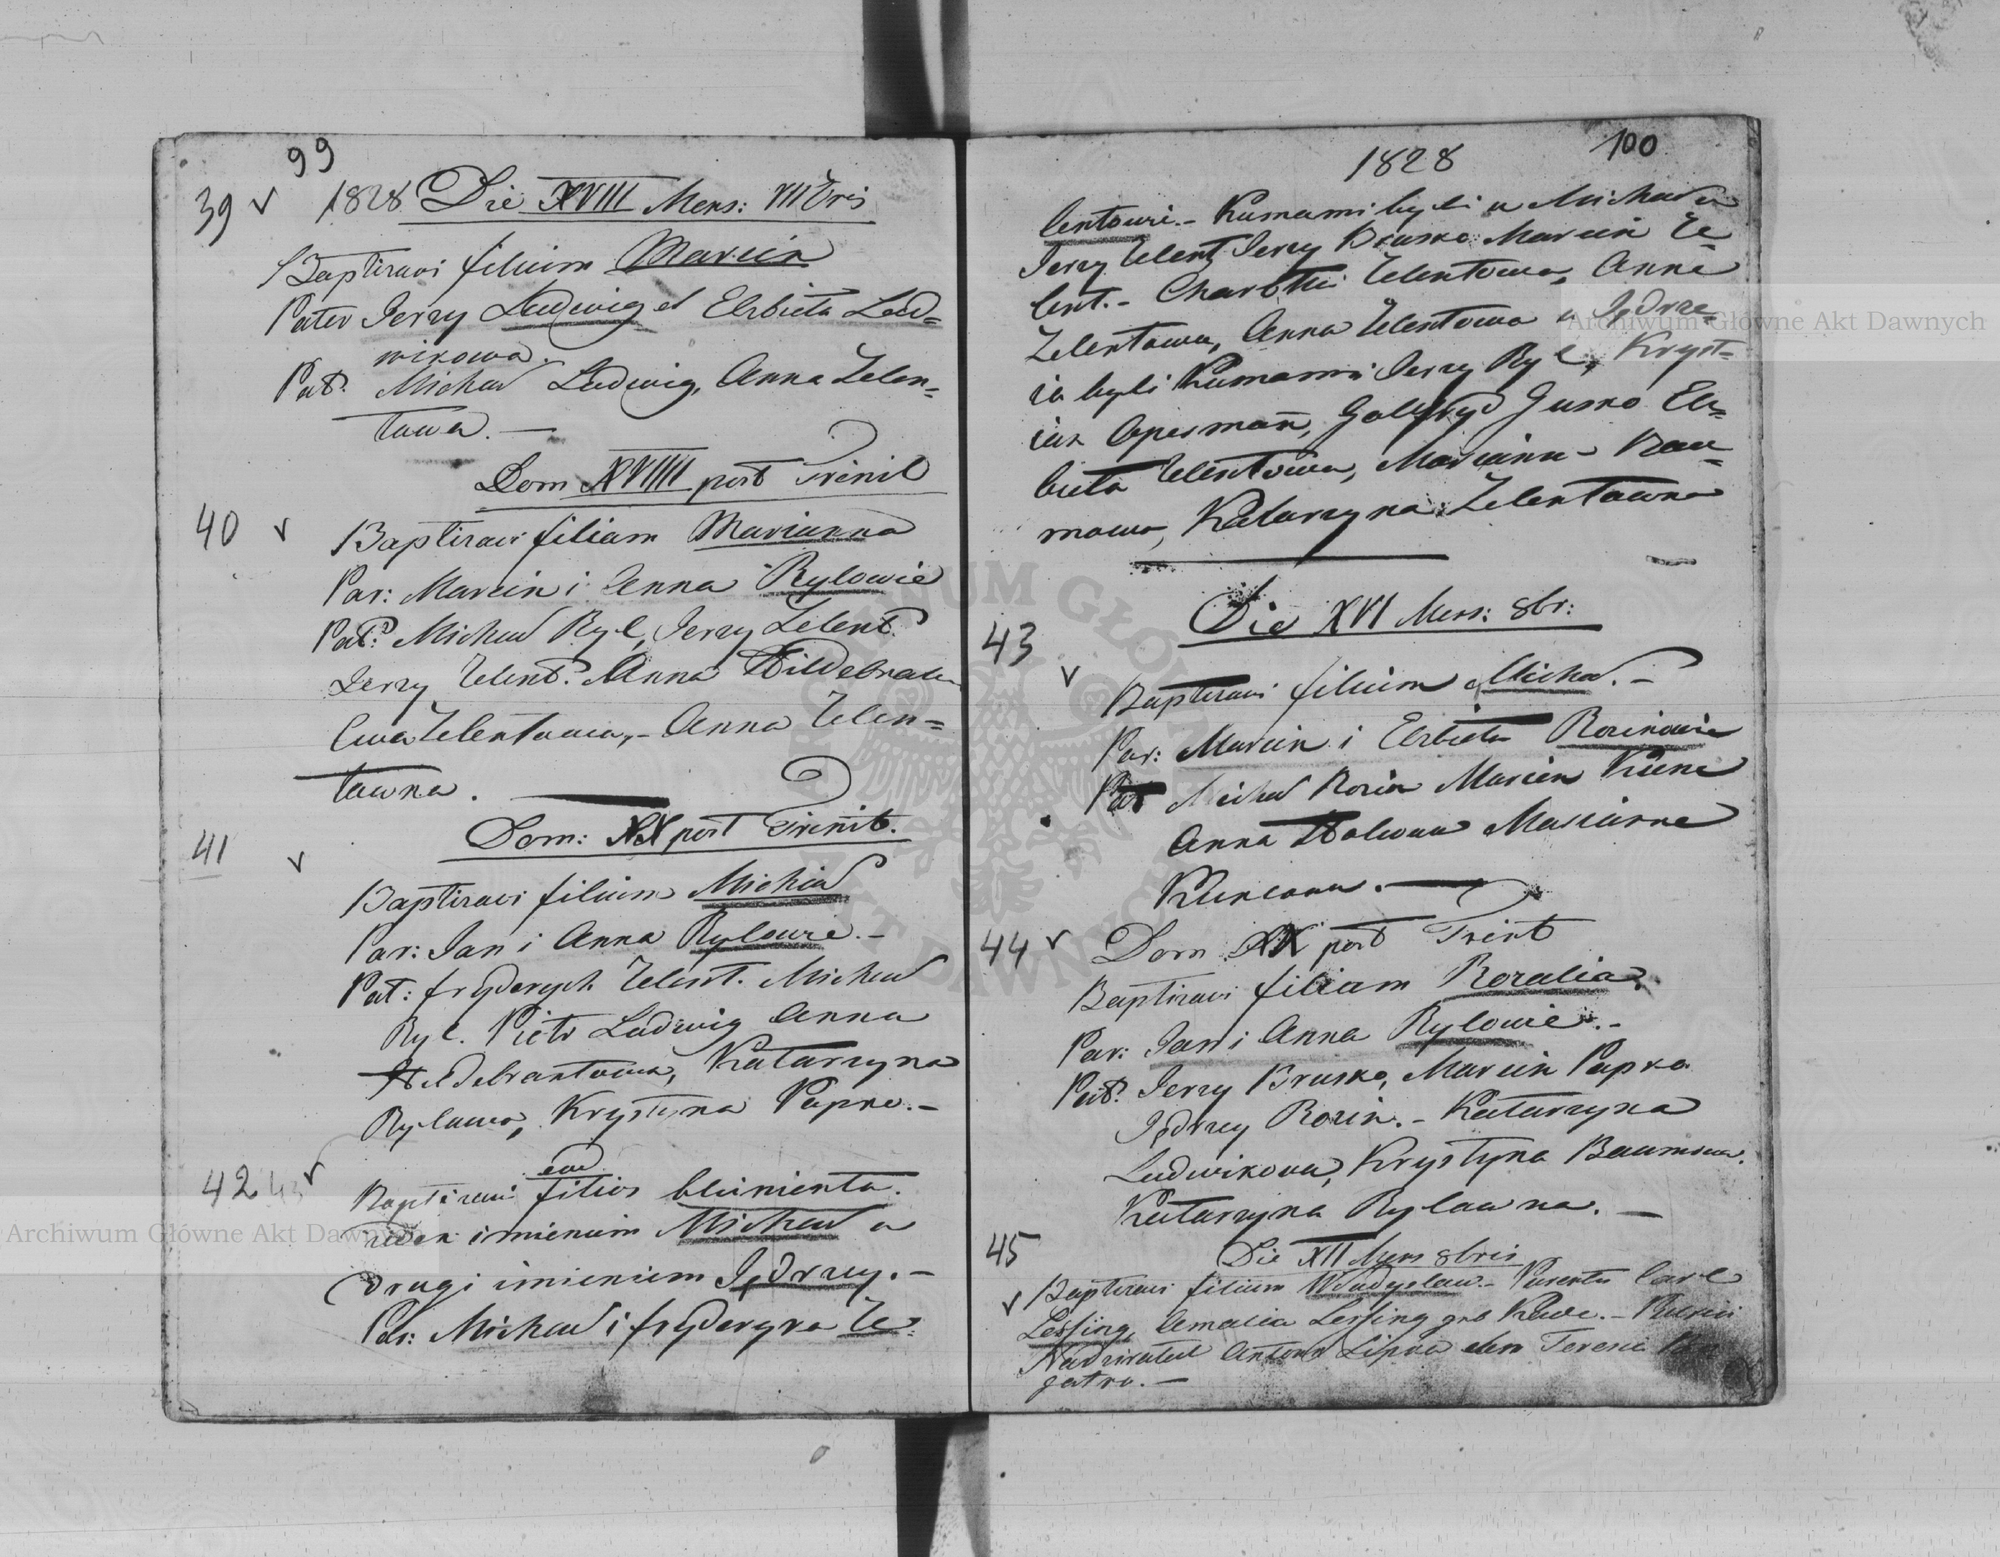 99
39 v 1828 Die XVIII Mens: VIIbris
Baptizavi filium Marcin
Pater Jerzy Ludwig et Elzbieta Lud=
wikowa.
Pat: Michał Ludwig, Anna Zelen=
towa. —
Dom XVIIII post Trinit
40 v Baptizavi filiam Marianna
Par: Marcin i Anna Rylowie
Pat: Michał Ryl, Jerzy Zelent.
Jerzy Zelent. Anna Hildebran
Ewa Zelentowa, – Anna Zelen=
towna.
Dom: XX post Trinit.
41 v
Baptizavi filium Michał
Par: Jan i Anna Rylowie. –
Pat: fryderych Zelent. Michał
Ryl. Piotr Ludwig Anna
Heldebrantowa, Katarzyna
Rylowa, Krystyna Papke. –
42 43 v Baptizavi filios bliznienta.
imieniem Michał a
drugi imieniem Jędrzey. –
Par: Michał i fryderyka Ze=
1828 100
lentowie. – Kumami byli u Michała
Jerzy Zelent Jerzy Brusko Marcin Ze=
lent. – Zelentowa, Anna
Zelentowa, Anna Zelentowa u Jędrze=
ia byli Kumami Jerzy Ryl, Kryst=
ian Gotfryd Gusko Elz=
bieta Zelentowa, Marianna Bau=
mowa, Katarzyna Zelentowna
Die XVI Mens: 8br:
43 v
Baptizavi filium Michał. –
Par: Marcin i Elzbieta Rozinowie
Pat Michał Rozin Marcin
Anna Marianna
44 v Dom XX post Trinit
Baptizavi filiam Rozalia,
Par: Jan i Anna Rylowie. –
Pat: Jerzy Brusko, Marcin Papka
Jędrzey Rozin. – Katarzyna
Ludwikowa, Krystyna Baumowa.
Katarzyna Rylowna. —
45 Die XII Mens 8bris
v Baptizavi filium Władysław. – Parentes Carl
Lessing, Amalia Lessing
Antoni Lipka Teresia
Archiwum Główne Akt Dawnych
Archiwum Główne Akt Dawnych
ARCHIWUM GŁÓWNE AKT DAWNYCH